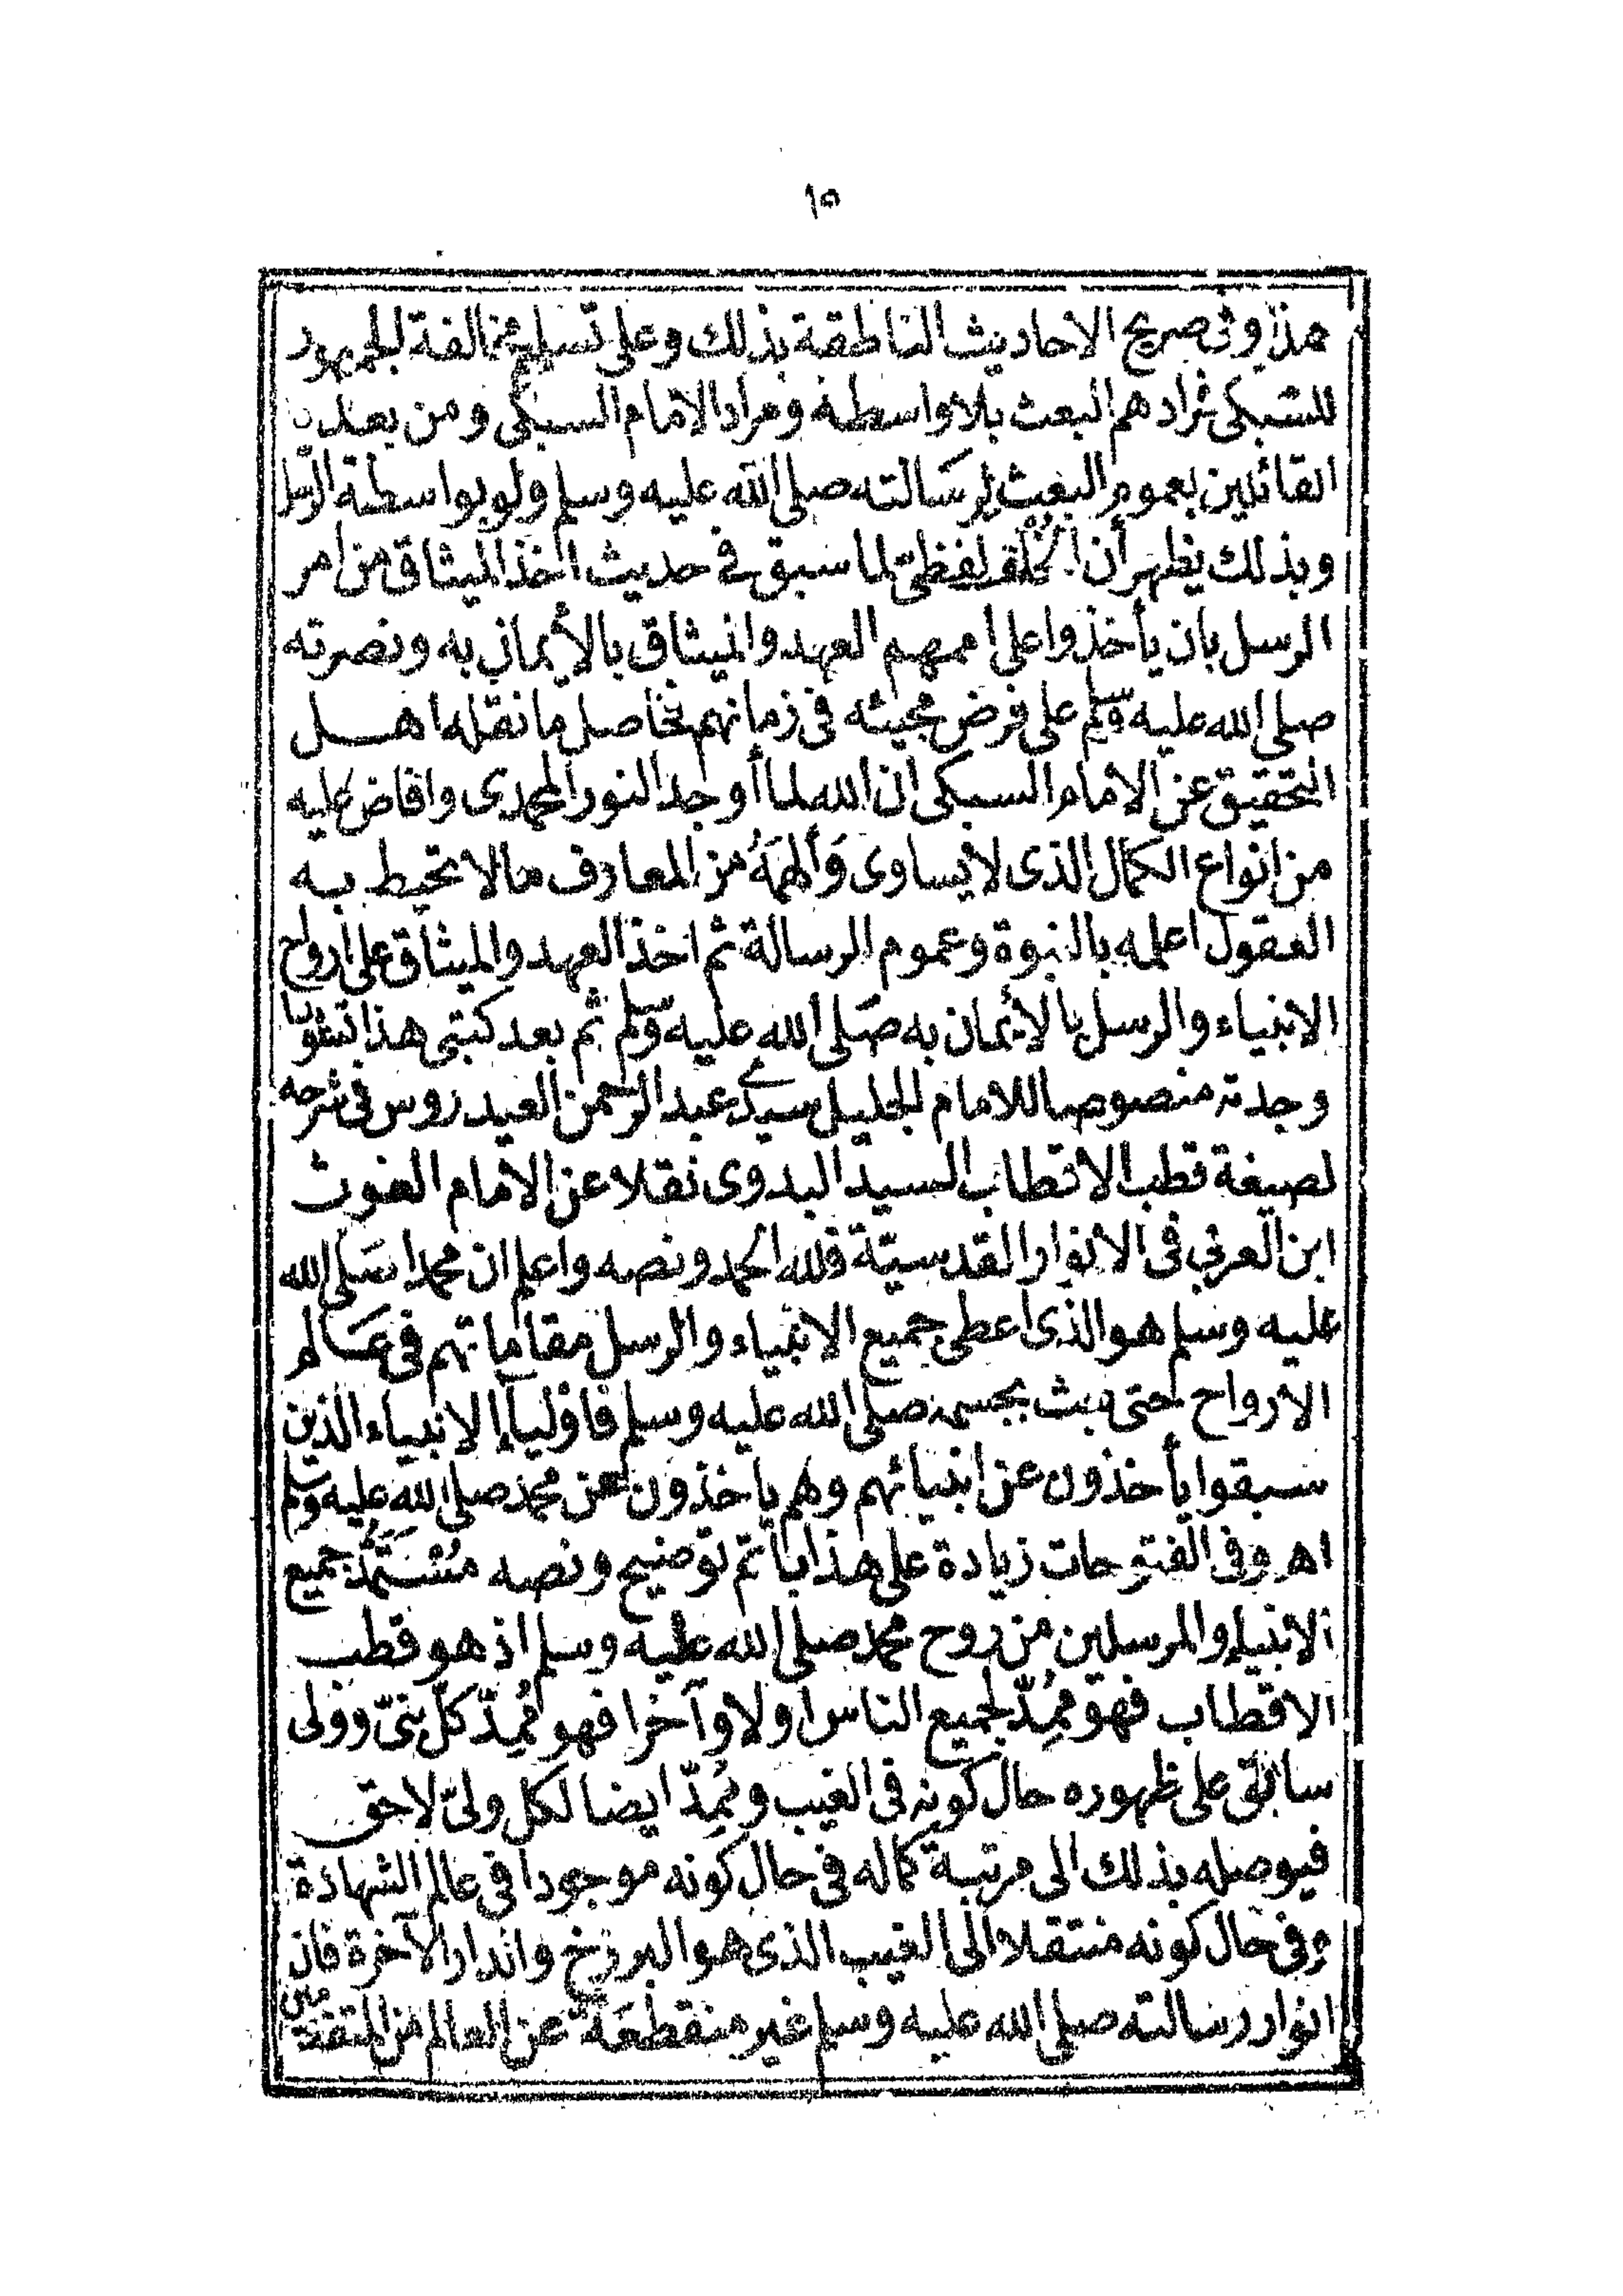 ١٥
هذا وفى صريح الاحاديث الناطقة بذلك وعلى تسليم مخالفة الجمهور
للسبكى فمرادهم البعث بلا واسطة ومراد الامام السبكى ومن بعده
القائلين بعموم البعث لرسَالته صلى الله عليه وسلم ولو بواسطة الرسل
وبذلك يظهر أن الخُلْف لفظىّ لما سبق فى حديث اخذ الميثاق من امر
الرسل بان يأخذوا على اممهم العهد والميثاق بالأيمان به ونصرته
صلى الله عليه وسلم على فرض مجيئه فى زمانهم فحاصل ما نقله اهل
التحقيق عن الامام السبكى ان الله لما أوجد النور المحمدى وافاض عليه
من انواع الكمال الذى لا يساوى وَألهمَهُ من المعارف ما لا تحيط به
العقول اعلمه بالنبوة وعموم الرسالة ثم اخذ العهد والميثاق على ارواح
الانبياء والرسل بالأيمان به صَلى الله عليه وسلم ثم بعد كتبى هذا
وجدته منصوصا للامام الجليل سيدى عبد الرحمن العيدروس فى شرحه
لصيغة قطب الاقطاب السيد البدوى نقلا عن الامام الغوث
ابن العربى فى الانوار القدسيّة فلله الحمد ونصه واعلم ان محمدا صَلى الله
عليه وسلم هو الذى اعطى جميع الانبياء والرسل مقاماتهم فى عَالم
الارواح حتى بعث بجسمه صلى الله عليه وسلم فاولياء الانبياء الذين
سبقوا يأخذون عن انبيائهم وهم ياخذون عن محمد صلى الله عليه وسلم
اهـ وفى الفتوحات زيادة على هذا باتم توضيح ونصه مُسْتَمَدُّ جميع
الانبياء والمرسلين من روح محمد صلى الله عليه وسلم اذ هو قطب
الاقطاب فهو مُمِدّ لجميع الناس اولا وآخرا فهو مُمِدّ كلّ نبىّ وولى
سابق على ظهوره حال كونه فى الغيب ومُمِدّ ايضا لكل ولىّ لاحق
فيوصله بذلك الى مرتبة كماله فى حال كونه موجودا فى عالم الشهادة
وفى حال كونه منتقلا الى الغيب الذى هو البرزخ والدار الآخرة فان
انوار رسالته صلى الله عليه وسلم غير منقطعَة عن العالم من المتقدمين